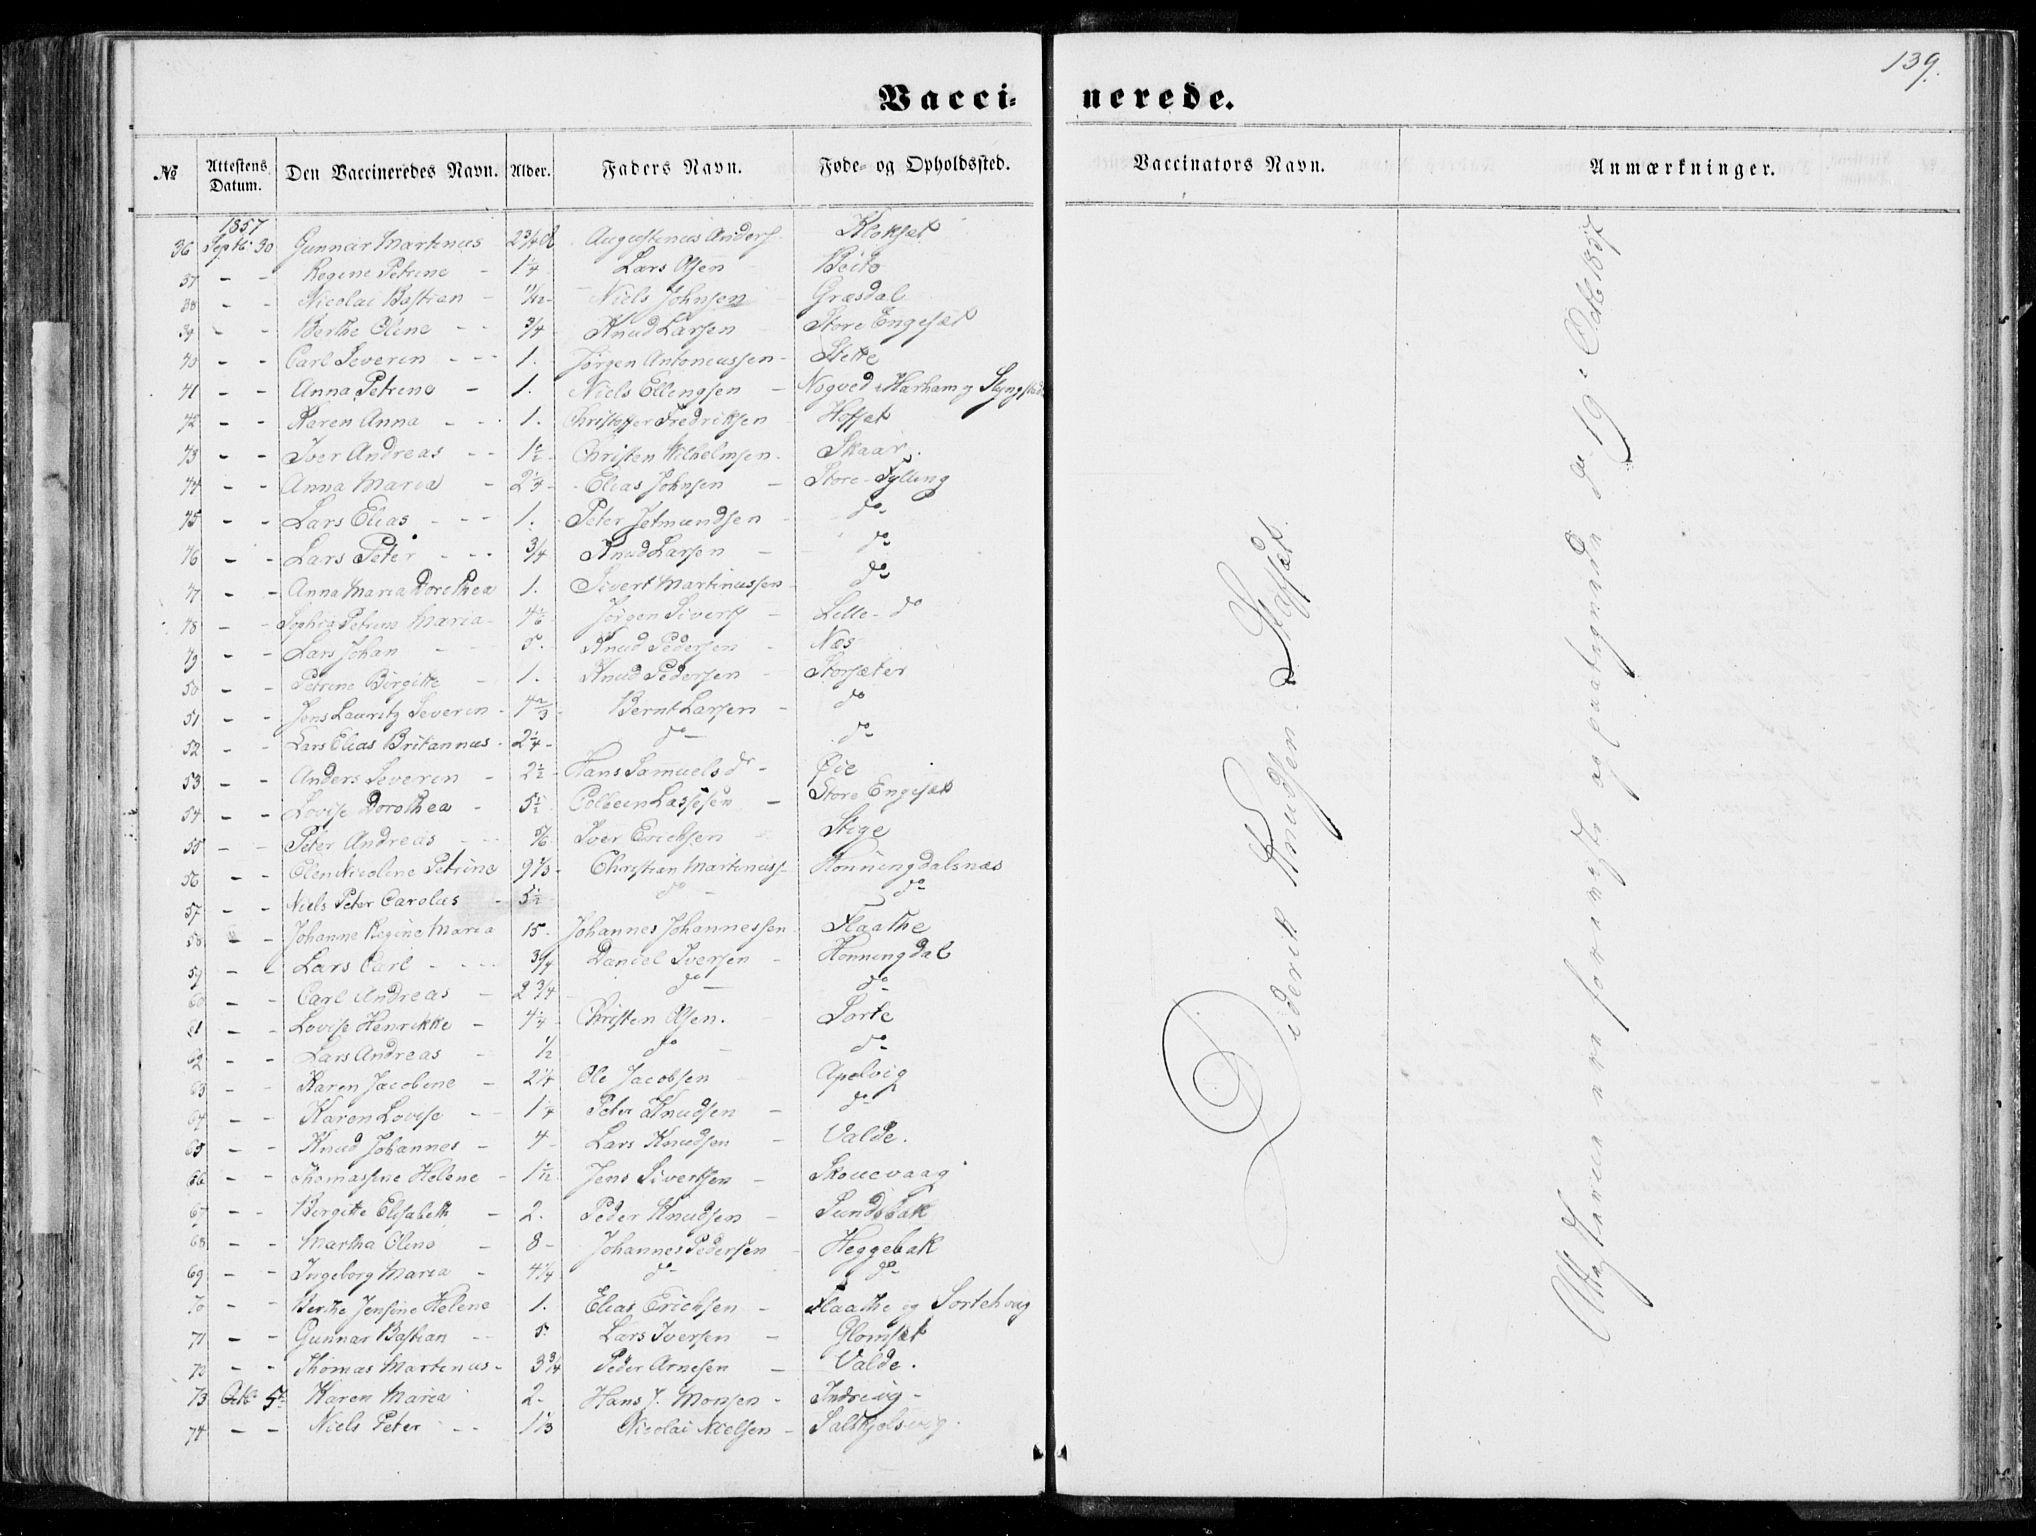 139.
Vaccinerede.
No Attestens Datum. Den Vaccineredes Navn. Alder. Faders Navn. Føde- og Opholdssted. Vaccinators Navn. Anmærkninger.
1857
36 Septb 30 Gunnar Martinus 2 3/4 Augustinus Anders. Kloksæt
37 - - Regine Petrine - 1 1/4 Lars Olsen Beito
38 - - Nicolai Bastian - 11/12 - Niels Johnsen Græsdal
39 - - Berthe Oline - - 3/4 Knud Larsen Store Engesæt
40 - - Carl Severin - - - 1. Jørgen Antoniussen - Stette
41 - - Anna Petrine - 1. Niels Ellingsen - Nogved i Harham og Slyngstad
42 - - Karen Anna - - 1. Christoffer Fredriksen Hofset
43 - - Iver Andreas - - 1 1/2 - Christen Wilhelmsen. Skaar.
44 - - Anna Maria - 2 1/4 - Elias Johnsen - Store-Tylling
45 - - Lars Elias - - - 1. Peter Jetmundsen - do
46 - - Lars Peter - - - 3/4 Knud Larsen - do
47 - - Anna Maria Dorothea 1. Sivert Martinussen - do
48 - - Sophia Petrine Maria - 4 1/2 Jørgen Siverts - Lille - do
49 - - Lars Johan - 5. Knud Pedersen - Næs
50 - - Petrine Birgitte - 1. Knud Pedersen - Storsæter
51 - - Jens Lauritz Severin - 4 2/3 Bernt Larsen - do
52 - - Lars Elias Britannus. 2 1/4 - do - do
53 - - Anders Severin - 2 1/2 - Hans Samuels do - Øie
54 - - Lovise Dorothea - 5 1/2 Colbein Lassesen - Store Engesæt
55 - - Peter Andreas - - 5/6 Iver Ericksen Stige
56 - - Olen Nicoline Petrine 9 1/3 - Christian Martinuss - Honningdalsnæs
57 - - Niels Peter Carolus - 5 1/2 - do - do
58 - - Johanne Regine Maria 15. Johannes Johannessen Flaathe
59 - - Lars Carl - - - 3/4 Daniel Iversen - Honningdal
60 - - Carl Andreas - 2 3/4 - do - do
61 - - Lovise Henrikke - 4 1/4 - Christen Olsen. - Sorte
62 - - Lars Andreas - 1/2 do - do
63 - - Karen Jacobine - 2 1/4 Ole Jacobsen - Apelvig
64 - - Karen Lovise - - 1 1/4 Peter Knudsen - do
65 - - Knud Johannes - 4 - Lars Knudsen - Valde.
66 - - Thomasine Helene - 1 1/12 Jens Sivertsen - Skouevaag
67 - - Birgitte Elisabeth - 2. Peder Knudsen - Sundsbak
68 - - Martha Oline - 8 - Johannes Pedersen - Heggebak
69 - - Ingeborg Maria - 4 1/4 do - do
70 - - Berthe Jensine Helene 1. Elias Ericksen - Flaathe og Sortehoug
71 - - Gunnar Bastian - - 5. Lars Iversen - Glomset
72 - - Thomas Martinus - 3 3/4 Peder Arnesen - Valde.
73 Octb. 5te Karen Maria 2 - Hans J. Monsen - Indrevig -
74 - - Niels Peter - - 1 1/3 Nicolai Nielsen - Salthjelsvig.
Diderik Knudsen Hofsæt.
den 19 Octb 1857